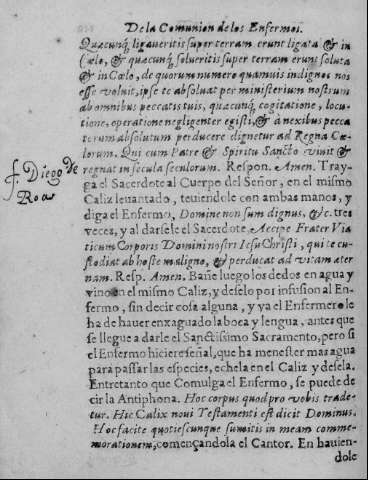 De la Comunion de los Enfermos.
Quæcunq; ligaueritis super terram erunt ligata & in
Cælo, & quæcunq; solueritis super terram erunt soluta
& in Cælo, de quorum numero quamuis indignos nos
esse voluit, ipse te absoluat per ministerium nostrum
ab omnibus peccatis tuis, quæcunq; cogitatione, locu-
tione, operatione negligenter egisti, & à nexibus pecca
torum absolutum perducere dignetur ad Regna Cœ-
lorum. Qui cum Patre & Spiritu Sancto viuit &
regnat in secula seculorum. Respon. Amen. Tray-
ga el Sacerdote al Cuerpo del Señor, en el mismo
Caliz leuantado, teniendole con ambas manos, y
diga el Enfermo, Domine non sum dignus, &c. tres
veces, y al darsele el Sacerdote Accipe Frater Via
ticum Corporis Domini nostri Iesu Christi, qui te cu-
stodiat ab hoste maligno, & perducat ad vitam æter
nam. Resp. Amen. Bañe luego los dedos en agua y
vino en el mismo Caliz, y deselo por infusion al En-
fermo, sin decir cosa alguna, y ya el Enfermero le
ha de hauer enxaguado la boca y lengua, antes que
se llegue a darle el Sanctissimo Sacramento, pero si
el Enfermo hiciere señal, que ha menester mas agua
para passar las especies, echela en el Caliz y desela.
Entretanto que Comulga el Enfermo, se puede de
cir la Antiphona. Hoc corpus quod pro vobis trade-
tur. Hic Calix noui Testamenti est dicit Dominus.
Hoc facite quotiescunque sumitis in meam comme-
morationem, començandola el Cantor. En hauien-
dole
f. Diego de
Roa